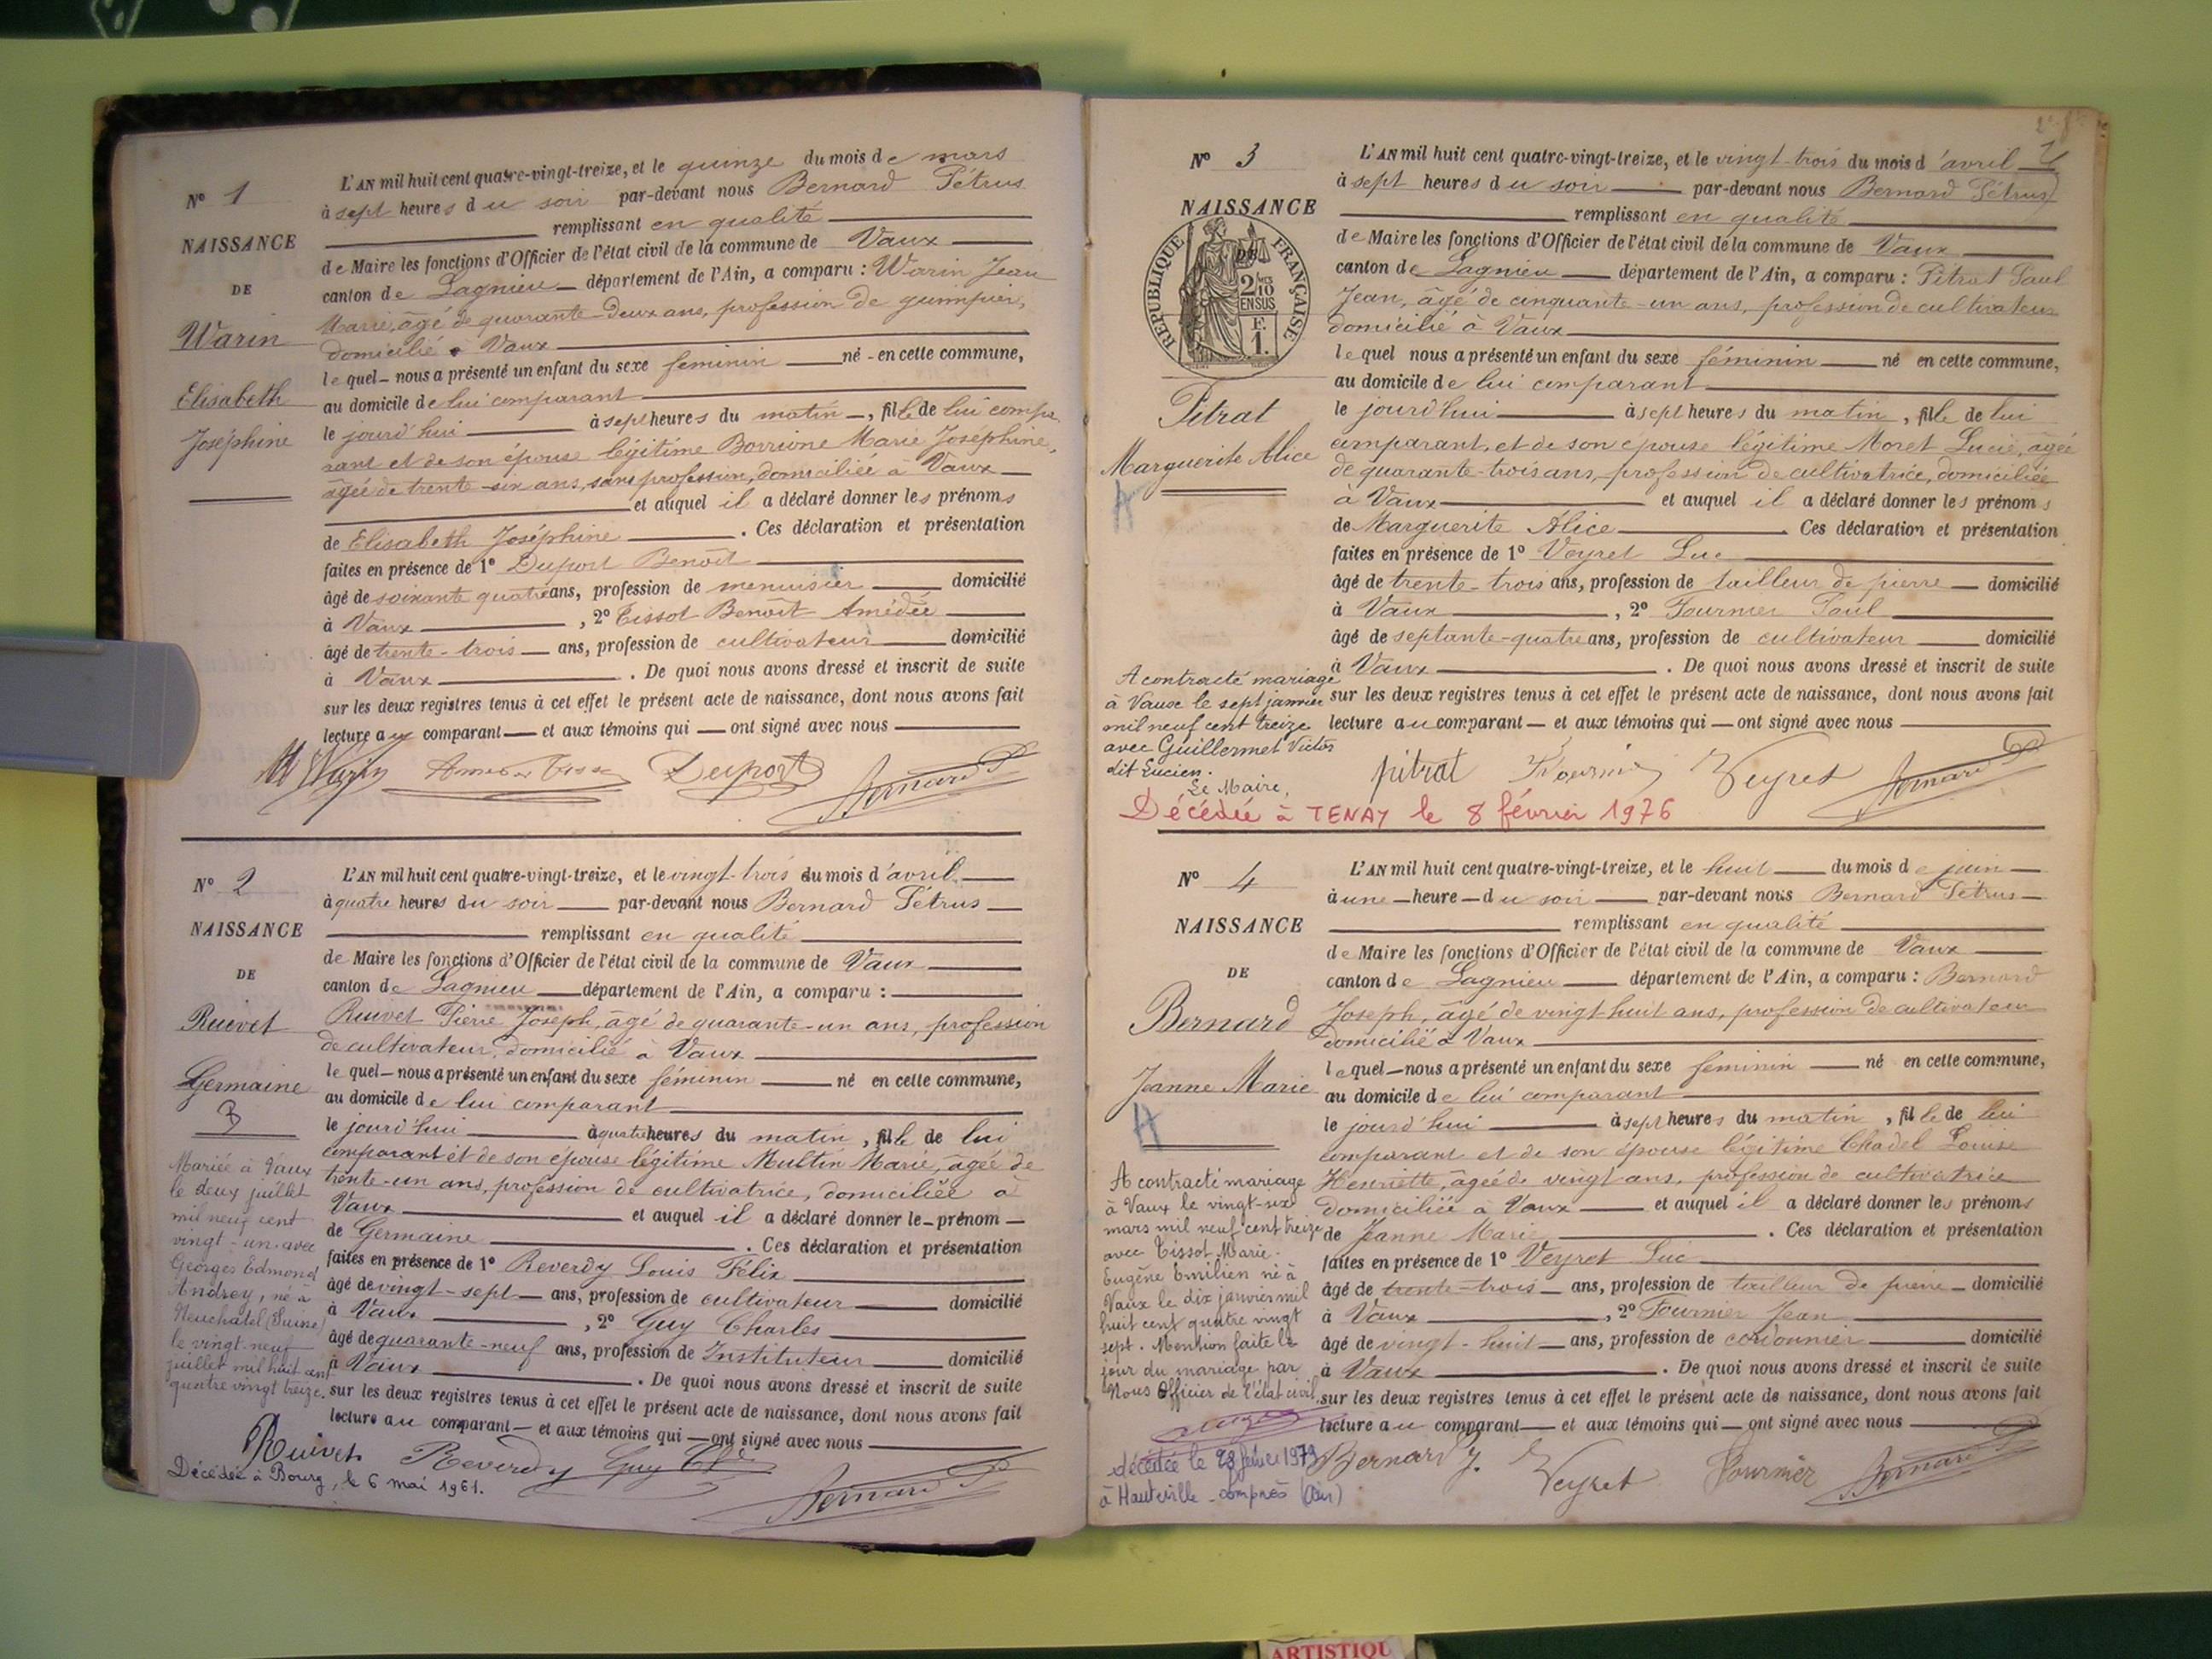 N° 1
NAISSANCE
DE
Warin
Elisabeth
Joséphine
L'AN mil huit cent quatre-vingt-treize, et le quinze du mois de mars
à sept heures du soir par-devant nous Bernard Pétrus
remplissant en qualité
de Maire les fonctions d'Officier de l'état civil de la commune de Vaux
canton de Lagnieu département de l'Ain, a comparu : Warin Jean
Marie, âgé de quarante-deux ans, profession de guimpier,
domicilié à Vaux
lequel nous a présenté un enfant du sexe féminin né en cette commune,
au domicile de lui comparant
le jourd'hui à sept heures du matin, fille de lui compa
rant et de son épouse légitime Borrione Marie Joséphine,
âgée de trente-six ans, sans profession, domiciliée à Vaux
et auquel il a déclaré donner les prénoms
de Elisabeth Joséphine. Ces déclaration et présentation
faites en présence de 1° Duport Benoît
âgé de soixante quatre ans, profession de menuisier domicilié
à Vaux, 2° Tissot Benoît Amédée
âgé de trente-trois ans, profession de cultivateur domicilié
à Vaux. De quoi nous avons dressé et inscrit de suite
sur les deux registres tenus à cet effet le présent acte de naissance, dont nous avons fait
lecture au comparant et aux témoins qui ont signé avec nous
Warin Duport Bernard P
N° 2
NAISSANCE
DE
Ruivet
Germaine
L'AN mil huit cent quatre-vingt-treize, et le vingt-trois du mois d'avril
à quatre heures du soir par-devant nous Bernard Pétrus
remplissant en qualité
de Maire les fonctions d'Officier de l'état civil de la commune de Vaux
canton de Lagnieu département de l'Ain, a comparu :
Ruivet Pierre Joseph, âgé de quarante-un ans, profession
de cultivateur, domicilié à Vaux
lequel nous a présenté un enfant du sexe féminin né en cette commune,
au domicile de lui comparant
le jourd'hui à quatre heures du matin, fille de lui
comparant et de son épouse légitime Multin Marie, âgée de
trente-un ans, profession de cultivatrice, domiciliée à
Vaux et auquel il a déclaré donner le prénom
de Germaine. Ces déclaration et présentation
faites en présence de 1° Reverdy Louis Félix
âgé de vingt-sept ans, profession de cultivateur domicilié
à Vaux, 2° Guy Charles
âgé de quarante-neuf ans, profession de Instituteur domicilié
à Vaux. De quoi nous avons dressé et inscrit de suite
sur les deux registres tenus à cet effet le présent acte de naissance, dont nous avons fait
lecture au comparant et aux témoins qui ont signé avec nous
Mariée à Vaux
le deux juillet
mil neuf cent
vingt-un avec
Georges Edmond
Andrey, né à
Neuchatel (Suisse)
le vingt-neuf
juillet mil huit cent
quatre vingt treize.
Ruivet Reverdy Guy Ch Bernard P
Décédée à Bourg, le 6 mai 1961.
N° 3
NAISSANCE
DE
RÉPUBLIQUE FRANÇAISE
2/10 EN SUS
F. 1.
Pitrat
Marguerite Alice
L'AN mil huit cent quatre-vingt-treize, et le vingt-trois du mois d'avril
à sept heures du soir par-devant nous Bernard Pétrus
remplissant en qualité
de Maire les fonctions d'Officier de l'état civil de la commune de Vaux
canton de Lagnieu département de l'Ain, a comparu : Pitrat Paul
Jean, âgé de cinquante-un ans, profession de cultivateur
domicilié à Vaux
lequel nous a présenté un enfant du sexe féminin né en cette commune,
au domicile de lui comparant
le jourd'hui à sept heures du matin, fille de lui
comparant, et de son épouse légitime Moret Lucie, âgée
de quarante-trois ans, profession de cultivatrice, domiciliée
à Vaux et auquel il a déclaré donner les prénoms
de Marguerite Alice Ces déclaration et présentation
faites en présence de 1° Veyret Luc
âgé de trente-trois ans, profession de tailleur de pierre domicilié
à Vaux, 2° Fournier Paul
âgé de septante-quatre ans, profession de cultivateur domicilié
à Vaux. De quoi nous avons dressé et inscrit de suite
sur les deux registres tenus à cet effet le présent acte de naissance, dont nous avons fait
lecture au comparant et aux témoins qui ont signé avec nous
A contracté mariage
à Vaux le sept janvier
mil neuf cent treize
avec Guillermet Victor
dit Lucien.
Le Maire,
pitrat Fournier Veyret Bernard P
Décédée à TENAY le 8 février 1976
N° 4
NAISSANCE
DE
Bernard
Jeanne Marie
L'AN mil huit cent quatre-vingt-treize, et le huit du mois de juin
à une heure du soir par-devant nous Bernard Pétrus
remplissant en qualité
de Maire les fonctions d'Officier de l'état civil de la commune de Vaux
canton de Lagnieu département de l'Ain, a comparu : Bernard
Joseph, âgé de vingt-huit ans, profession de cultivateur
domicilié à Vaux
lequel nous a présenté un enfant du sexe féminin né en cette commune,
au domicile de lui comparant
le jourd'hui à sept heures du matin, fille de lui
comparant et de son épouse légitime Chadel Louise
Henriette, âgée de vingt ans, profession de cultivatrice
domiciliée à Vaux et auquel il a déclaré donner les prénoms
de Jeanne Marie. Ces déclaration et présentation
faites en présence de 1° Veyret Luc
âgé de trente-trois ans, profession de tailleur de pierre domicilié
à Vaux, 2° Fournier Jean
âgé de vingt-huit ans, profession de cordonnier domicilié
à Vaux. De quoi nous avons dressé et inscrit de suite
sur les deux registres tenus à cet effet le présent acte de naissance, dont nous avons fait
lecture au comparant et aux témoins qui ont signé avec nous
A contracté mariage
à Vaux le vingt-six
mars mil neuf cent treize
avec Tissot Marie-
Eugène Emilien né à
Vaux le dix janvier mil
huit cent quatre vingt
sept. Mention faite le
jour du mariage par
Nous Officier de l'état civil.
Bernard J. Veyret Fournier Bernard P
décédée le 28 février 1979
à Hauteville-Lompnès (Ain)
ARTISTIQU